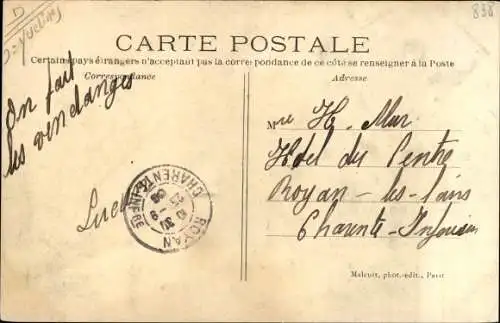 D
838
CARTE POSTALE
Certains pays étrangers n'acceptant pas la correspondance de ce côté se renseigner à la Poste
Correspondance
Adresse
On fait
les vendanges
Lucie
ROYAN
CHARENTE-INFRE
Mme H. Mar
Hôtel du Centre
Royan-les-Bains
Charente-Inférieure
Malcuit, phot.-édit., Paris